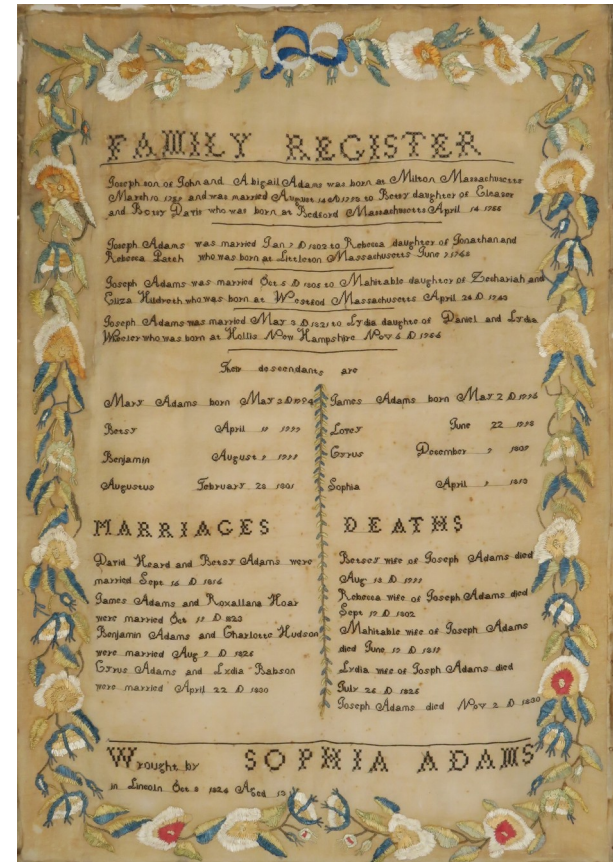 FAMILY REGISTER
Joseph son of John and Abigail Adams was born at Milton Massachusetts
March 10 and was married August 14 D 1792 to Betsy daughter of Eleaser
and Betsy Davis who was born at Bedford Massachusetts April 14 1766
Joseph Adams was married Jan 7 D 1802 to Rebecca daughter of Jonathan and
Rebecca Patch who was born at Littleton Massachusetts June
Joseph Adams was married Oct 5 D to Mahitable daughter of Zechariah and
Eliza Hildreth who was born at Westford Massachusetts April 24 D
Joseph Adams was married May 3 D 1821 to Lydia daughte of Daniel and Lydia
Wheeler who was born at Hollis New Hampshire Nov 6 D 1766
Their descendants are
Mary Adams born May 2 D 1794
James Adams born May 2 D 1796
Betsy April 1797
Lovey June 22 1798
Benjamin August 1799
Cyrus December 9 1807
Augustus February 20 1801
Sophia April 1812
MARRIAGES
David Heard and Betsy Adams were
married Sept 16 D 1816
James Adams and Roxallana Hoar
were married Oct D 1823
Benjamin Adams and Charlotte Hudson
were married Aug 9 D 1826
Cyrus Adams and Lydia Babson
were married April 22 D 1830
DEATHS
Betsey wife of Joseph Adams died
Aug 12 D
Rebecca wife of Joseph Adams died
Sept 17 D 1802
Mahitable wife of Joseph Adams
died June 17 D
Lydia wife of Josph Adams died
July 26 D 1826
Joseph Adams died Nov 2 D 1830
Wrought by SOPHIA ADAMS
in Lincoln Oct 8 1824 Aged 12